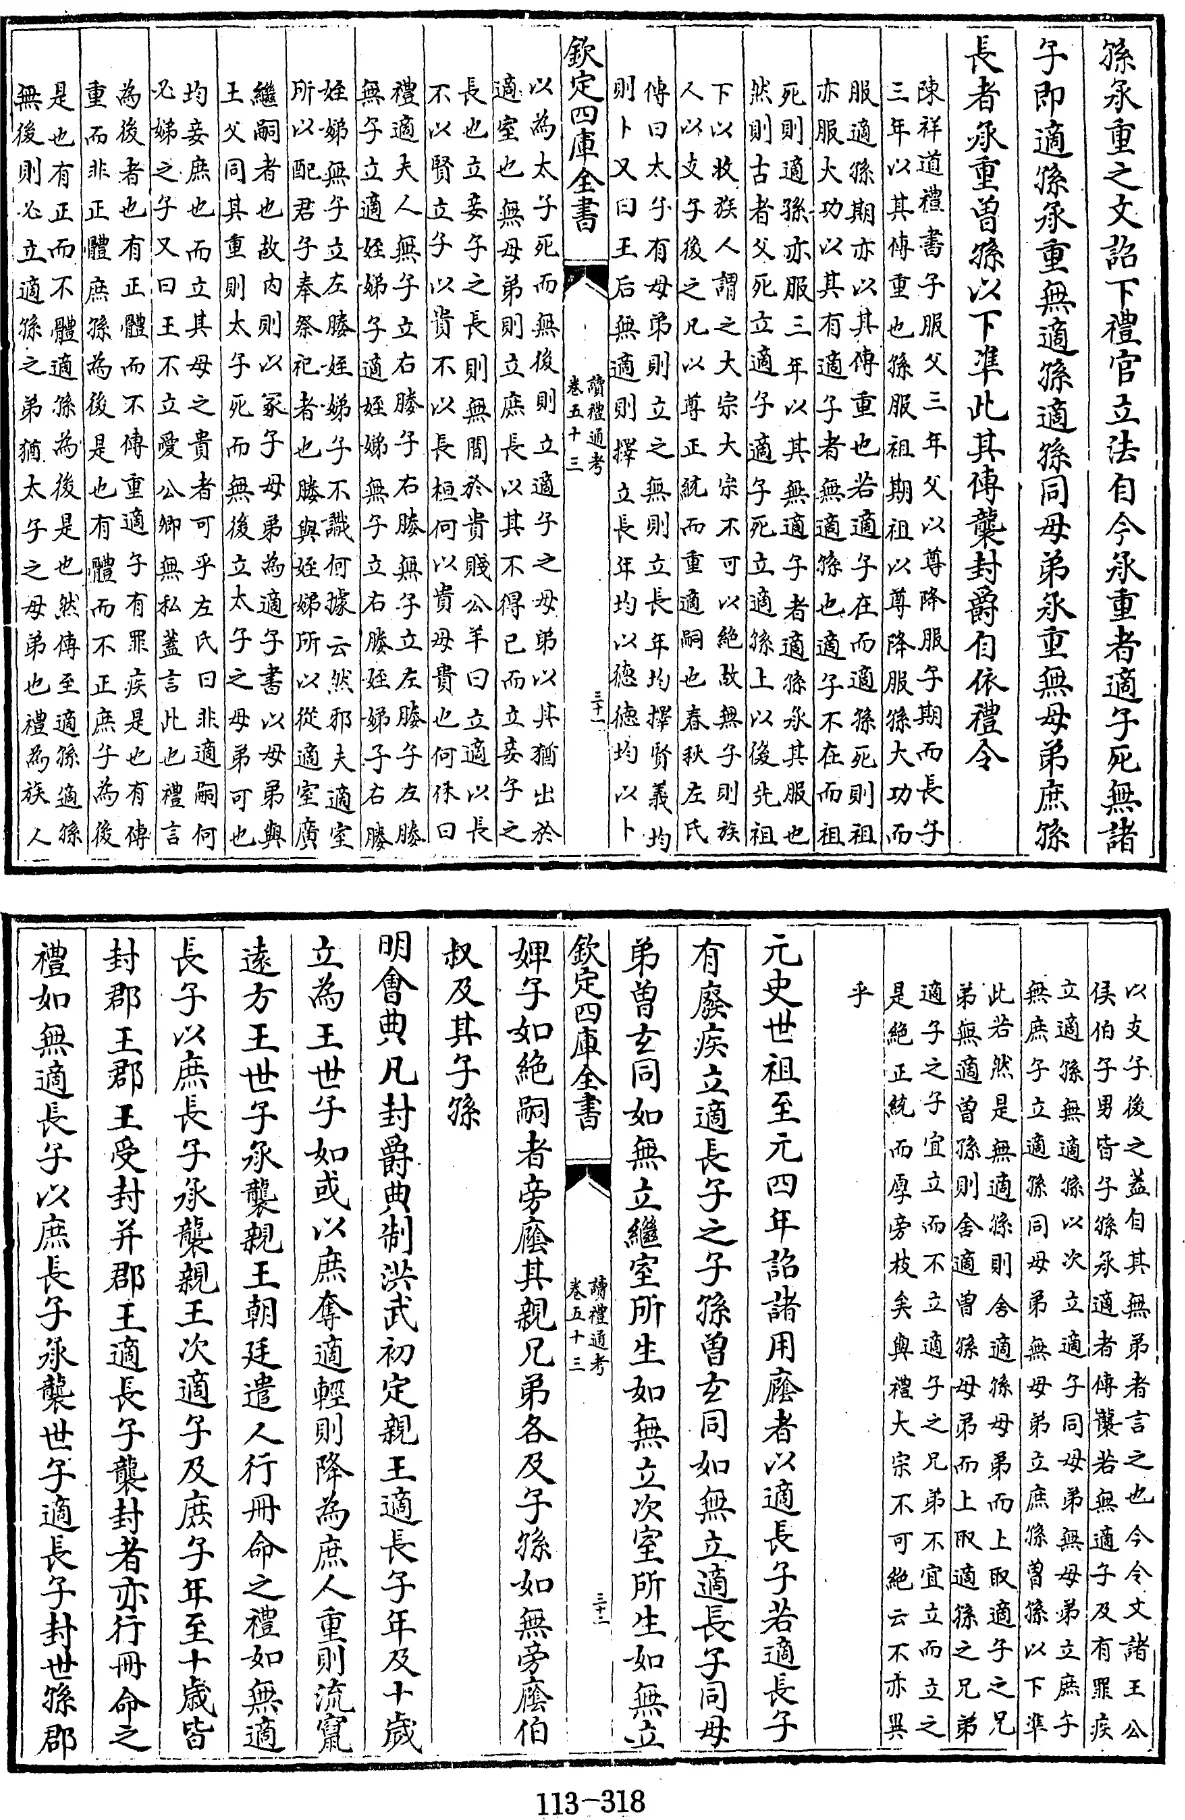 孫承重之文詔下禮官立法自今承重者適子死無諸
子即適孫承重無適孫適孫同母弟承重無母弟庶孫
長者承重曾孫以下準此其傳襲封爵自依禮令
陳祥道禮書子服父三年父以尊降服子期而長子
三年以其傳重也孫服祖期祖以尊降服孫大功而
服適孫期亦以其傳重也若適子在而適孫死則祖
亦服大功以其有適子者無適孫也適子不在而祖
死則適孫亦服三年以其無適子者適孫承其服也
然則古者父死立適子適子死立適孫上以後先祖
下以收族人謂之大宗大宗不可以絕故無子則族
人以支子後之凡以尊正統而重適嗣也春秋左氏
傳曰太子有母弟則立之無則立長年均擇賢義均
則卜又曰王后無適則擇立長年均以德德均以卜
欽定四庫全書
讀禮通考
卷五十三
三十一
以為太子死而無後則立適子之母弟以其猶出於
適室也無母弟則立庶長以其不得已而立妾子之
長也立妾子之長則無間於貴賤公羊曰立適以長
不以賢立子以貴不以長桓何以貴母貴也何休曰
禮適夫人無子立右媵子右媵無子立左媵子左媵
無子立適姪娣子適姪娣無子立右媵姪娣子右媵
姪娣無子立左媵姪娣子不識何據云然邪夫適室
所以配君子奉祭祀者也媵與姪娣所以從適室廣
繼嗣者也故内則以冢子母弟為適子書以母弟與
王父同其重則太子死而無後立太子之母弟可也
均妾庶也而立其母之貴者可乎左氏曰非適嗣何
必娣之子又曰王不立愛公卿無私蓋言此也禮言
為後者也有正體而不傳重適子有罪疾是也有傳
重而非正體庶孫為後是也有體而不正庶子為後
是也有正而不體適孫為後是也然傳至適孫適孫
無後則必立適孫之弟猶太子之母弟也禮為族人
以支子後之蓋自其無弟者言之也今令文諸王公
侯伯子男皆子孫承適者傳襲若無適子及有罪疾
立適孫無適孫以次立適子同母弟無母弟立庶子
無庶子立適孫同母弟無母弟立庶孫曾孫以下準
此若然是無適孫則舍適孫母弟而上取適子之兄
弟無適曾孫則舍適曾孫母弟而上取適孫之兄弟
適子之子宜立而不立適子之兄弟不宜立而立之
是絕正統而厚旁枝矣與禮大宗不可絕云不亦異
乎
元史世祖至元四年詔諸用廕者以適長子若適長子
有廢疾立適長子之子孫曾玄同如無立適長子同母
弟曾玄同如無立繼室所生如無立次室所生如無立
欽定四庫全書
讀禮通考
卷五十三
三十二
婢子如絕嗣者旁廕其親兄弟各及子孫如無旁廕伯
叔及其子孫
明會典凡封爵典制洪武初定親王適長子年及十歲
立為王世子如或以庶奪適輕則降為庶人重則流竄
遠方王世子承襲親王朝廷遣人行冊命之禮如無適
長子以庶長子承襲親王次適子及庶子年至十歲皆
封郡王郡王受封并郡王適長子襲封者亦行冊命之
禮如無適長子以庶長子承襲世子適長子封世孫郡
113-318